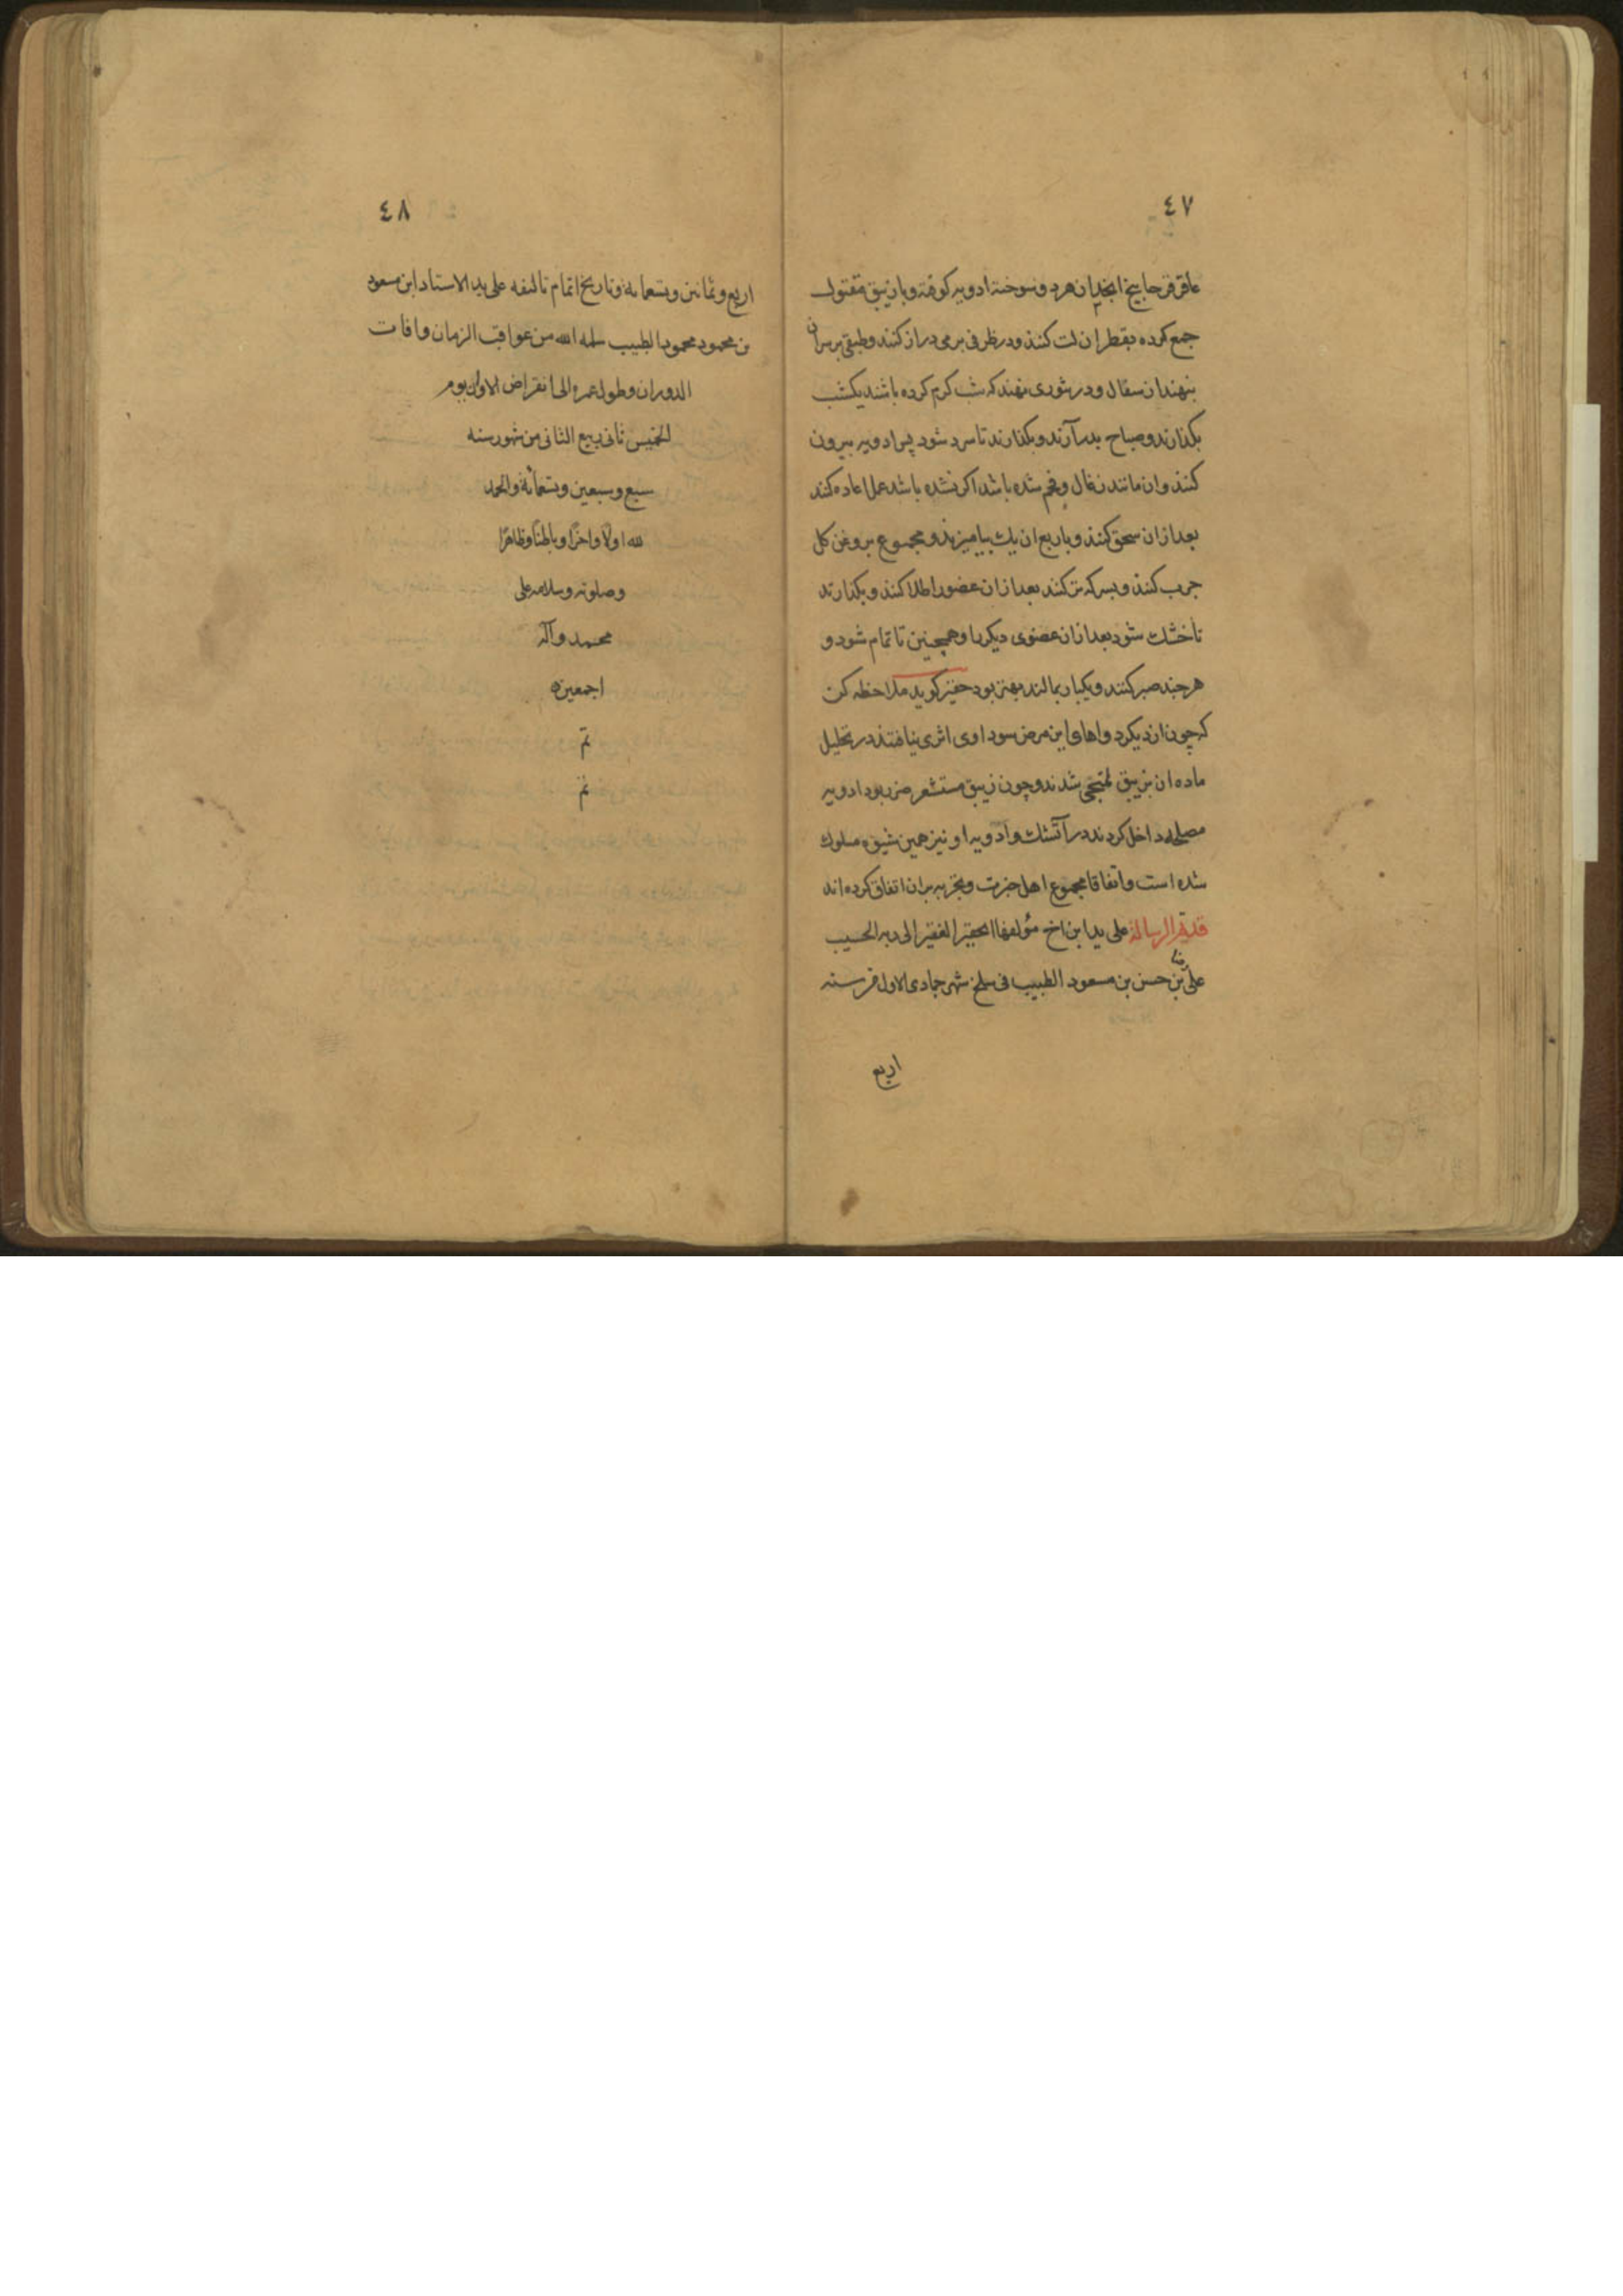 ٤٧
عاقر قرحا بیخ انجدان هرد و سوخته ادویه کوفته و بازیبق مقتول
جمع کرده بقطران لت کنند و در ظرفی برمی دراز کنند و طبقی بر سر ان
بنهند از سفال و در تنوری نهند که شب کرم کرده باشند یکشب
بکذارند و صباح بدر آرند و بکذارند تا سرد شود پس ادویه بیرون
کنند وان مانند زغال و فحم شده باشد اکر نشده باشد عمل اعاده کند
بعد از ان سحق کنند و با ربع ان بیامیزند و مجموع بروغن کل
چرب کنند و بسرکه تر کنند بعد از ان عضو را طلا کنند و بکذارند
تا خشك شود بعد از ان عضوی دیکر را و همچنین تا تمام شود و
هر چند صبر کنند و یکبار بمالند بهتر بود حقیر کوید ملاحظه کن
که چون از دیکر دواهای این مرض سوداوی اثری نیافتند در تحلیل
ماده ان بزیبق ملتجی شدند و چون زیبق مستشعر ضرر بود ادویه
مصلحه داخل کردند در آتشك وادویه او نیز همین شیوه مسلوك
شده است واتفاقا مجموع اهل خبرت و تجربه بران اتفاق کرده اند
قد تم الرسالة على يد ابن اخ مؤلفها الحقير الفقير الى ربه الحسيب
على رضا بن حسن بن مسعود الطبيب فى سلخ شهر جمادى الاول من سنه
اربع
٤٨
اربع وثمانين وتسعمائة وتاريخ اتمام تاليفه على يد الاستاد ابن مسعود
بن محمود محمود الطبيب سلمه الله من عواقب الزمان وافات
الدوران وطول عمره الى انقراض الاوان يوم
الخميس ثانى ربيع الثانى من شهور سنه
سبع وسبعين وتسعمائة والحمد
لله اولًا واخرًا وباطنًا وظاهرًا
وصلوته وسلامه على
محمد وآله
اجمعين
تم
تم